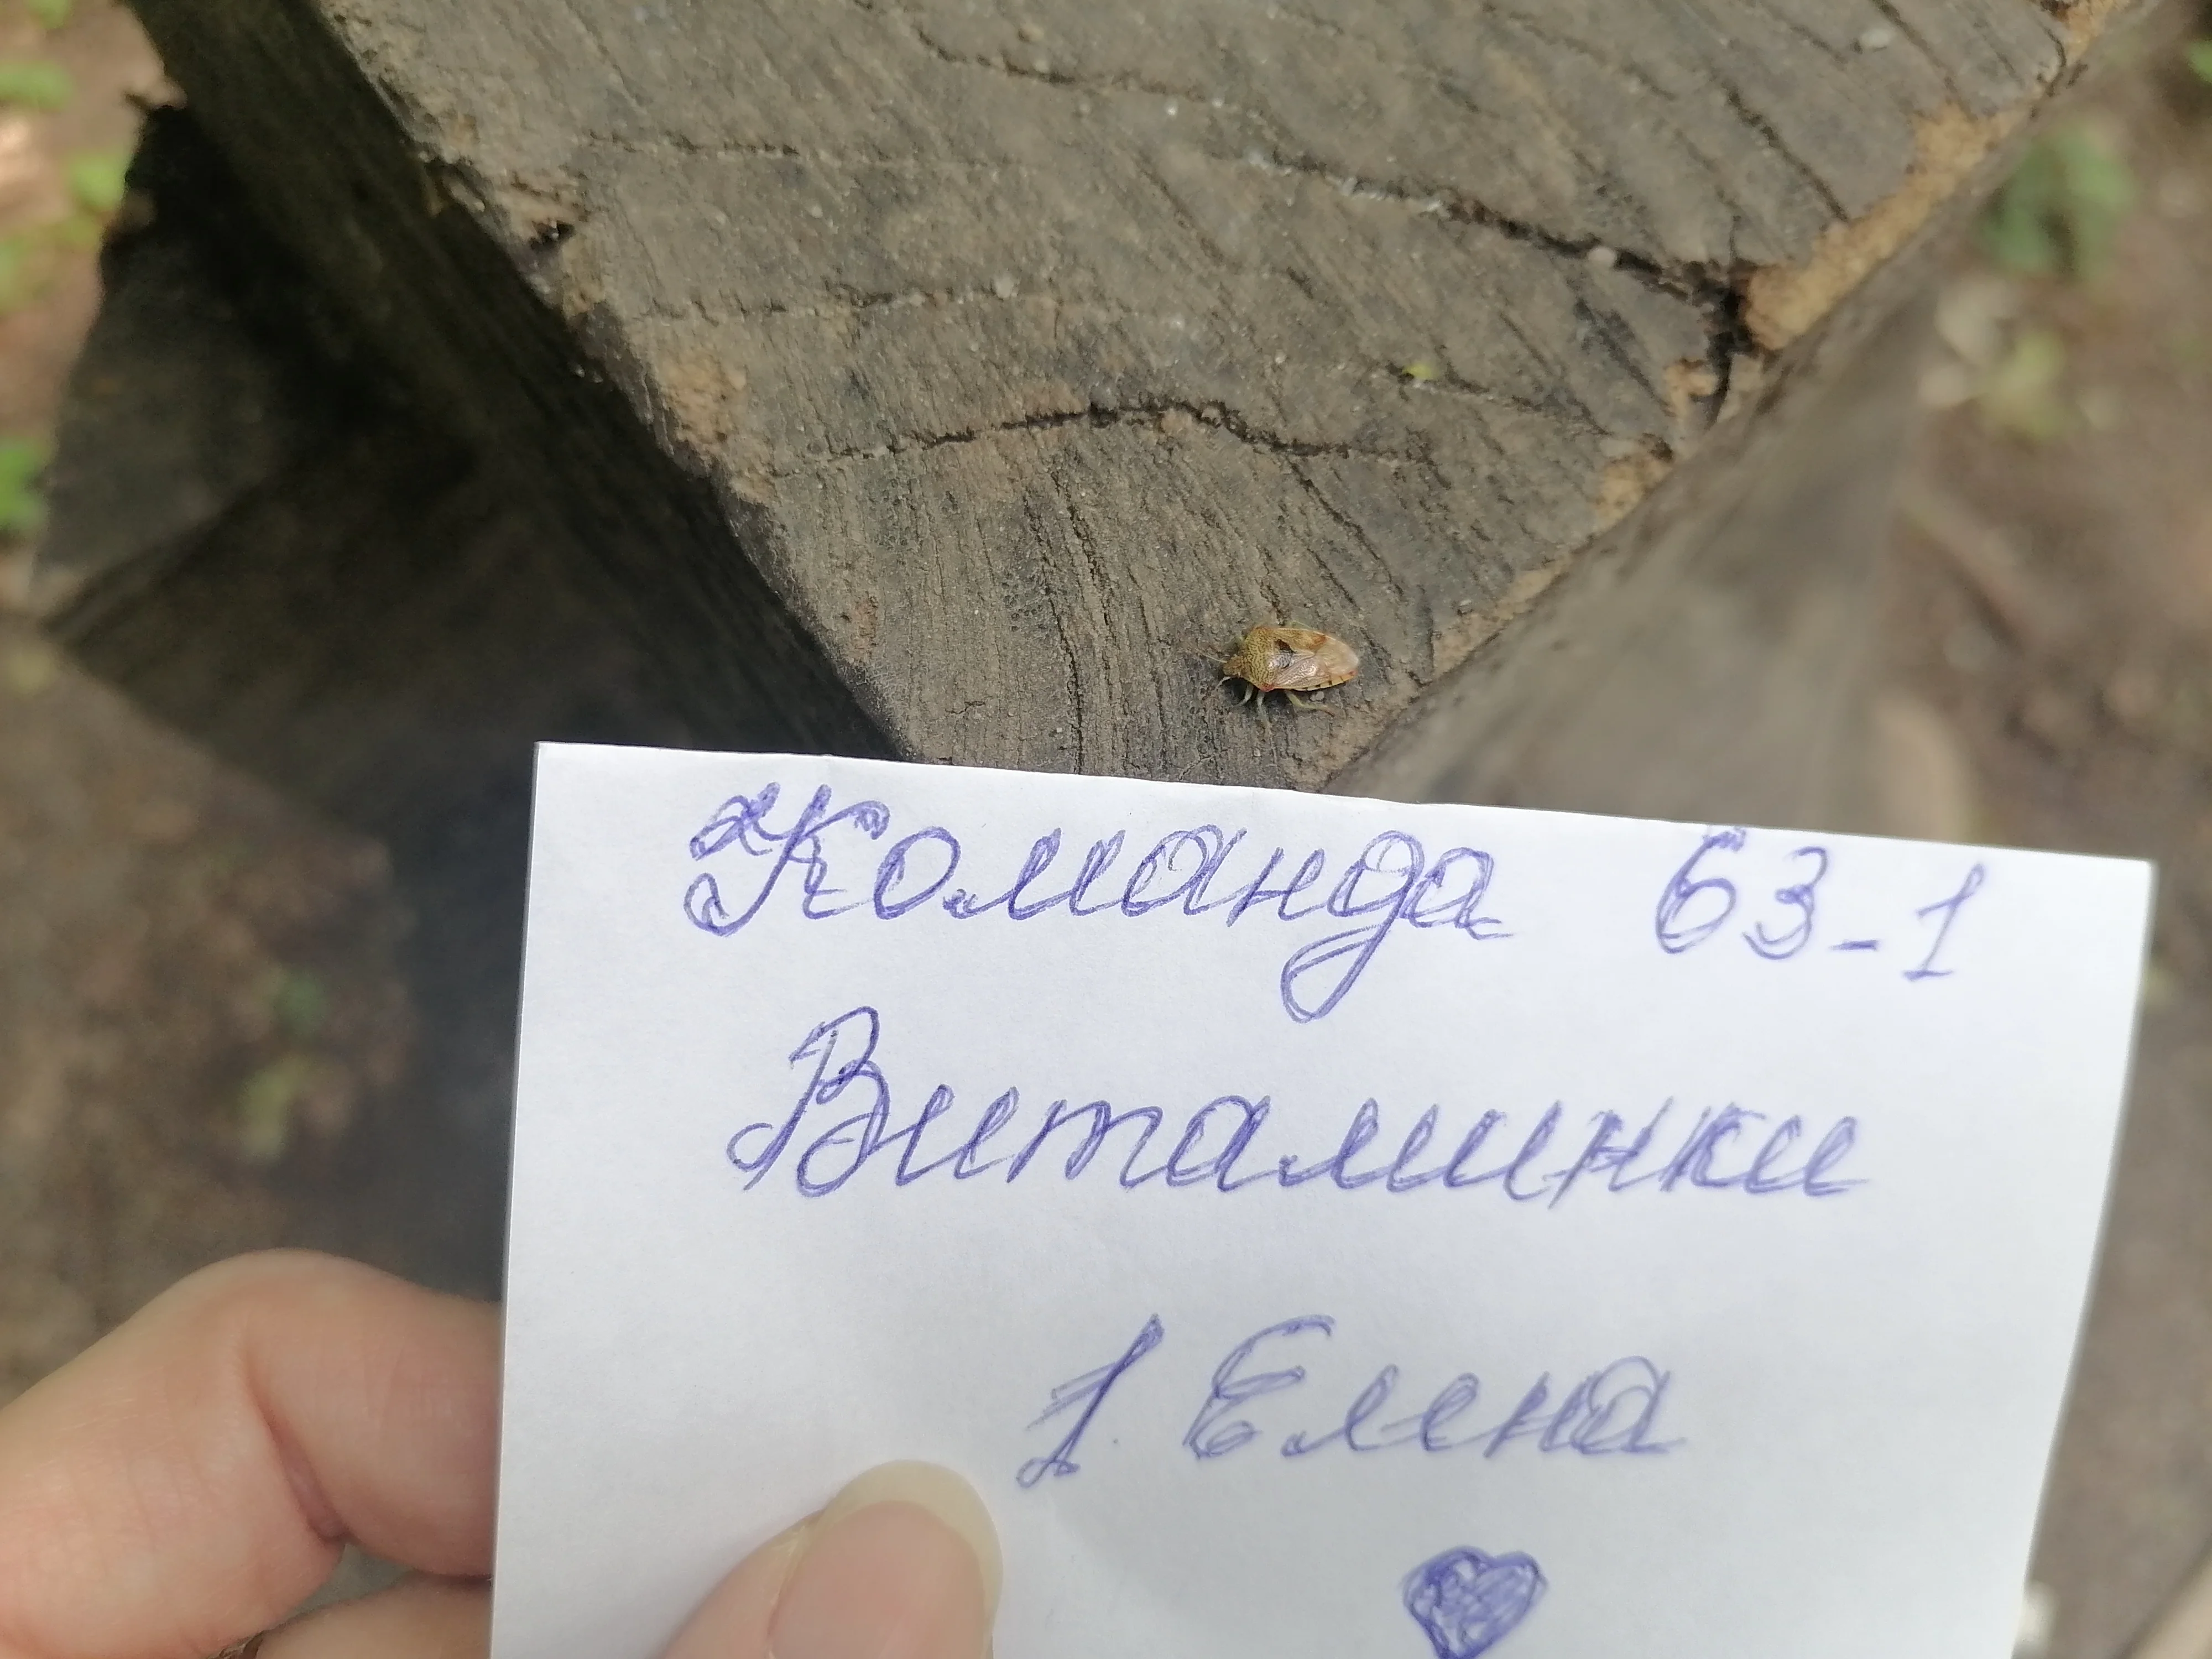 Команда 63-1
Витаминки
1. Елена